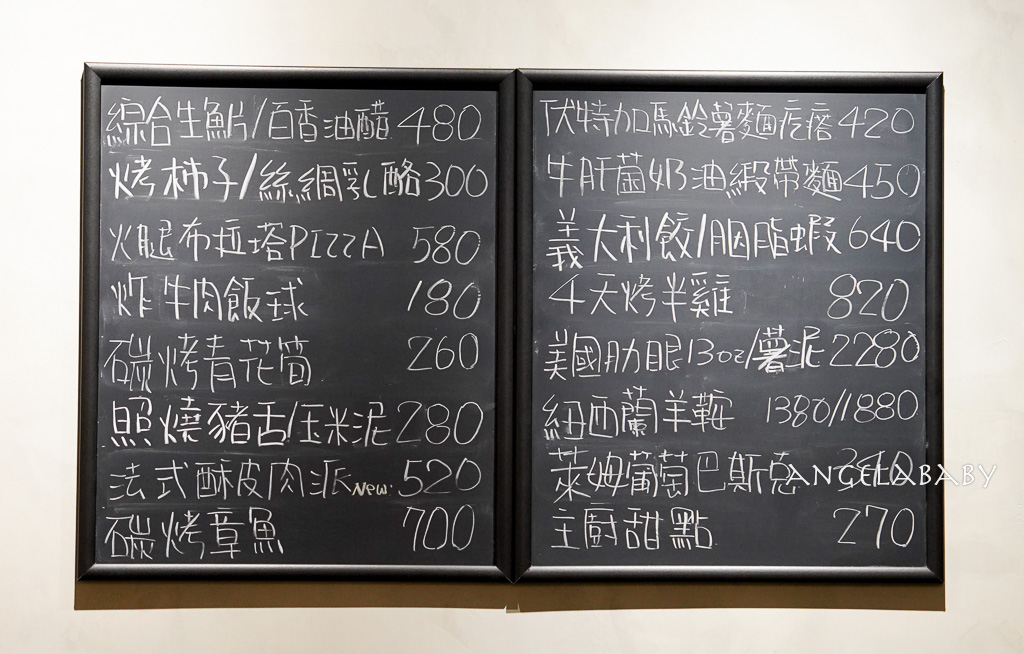 綜合生魚片/百香油醋 480
烤柿子/絲綢乳酪 300
火腿布拉塔PIZZA 580
炸牛肉飯球 180
碳烤青花筍 260
照燒豬舌/玉米泥 280
法式酥皮肉派New. 520
碳烤章魚 700
伏特加馬鈴薯麵疙瘩 420
牛肝菌奶油緞帶麵 450
義大利餃/胭脂蝦 640
4天烤半雞 820
美國肋眼13oz/薯泥 2280
紐西蘭羊鞍 1380/1880
萊姆葡萄巴斯克 340
主廚甜點 270
ANGELABABY